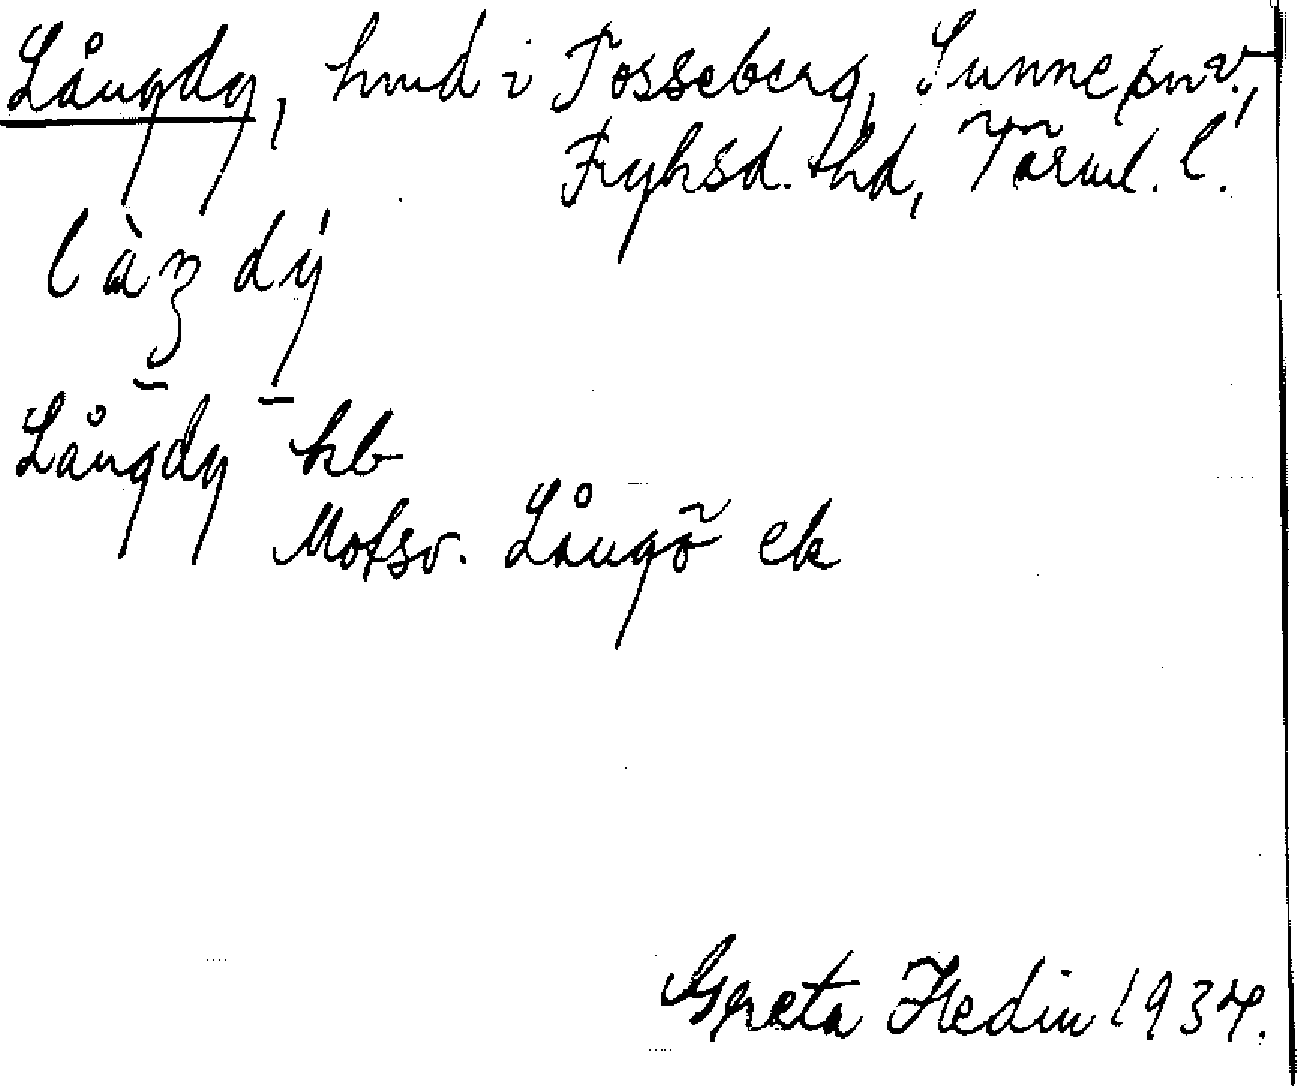 Långdy, hmd i Fosseberg, Sunne snv.,
Fryksd. thd, Värml. l.
làŋ dý
Långdy hb
Motsv. Långö ek
Greta Hedin 1934.